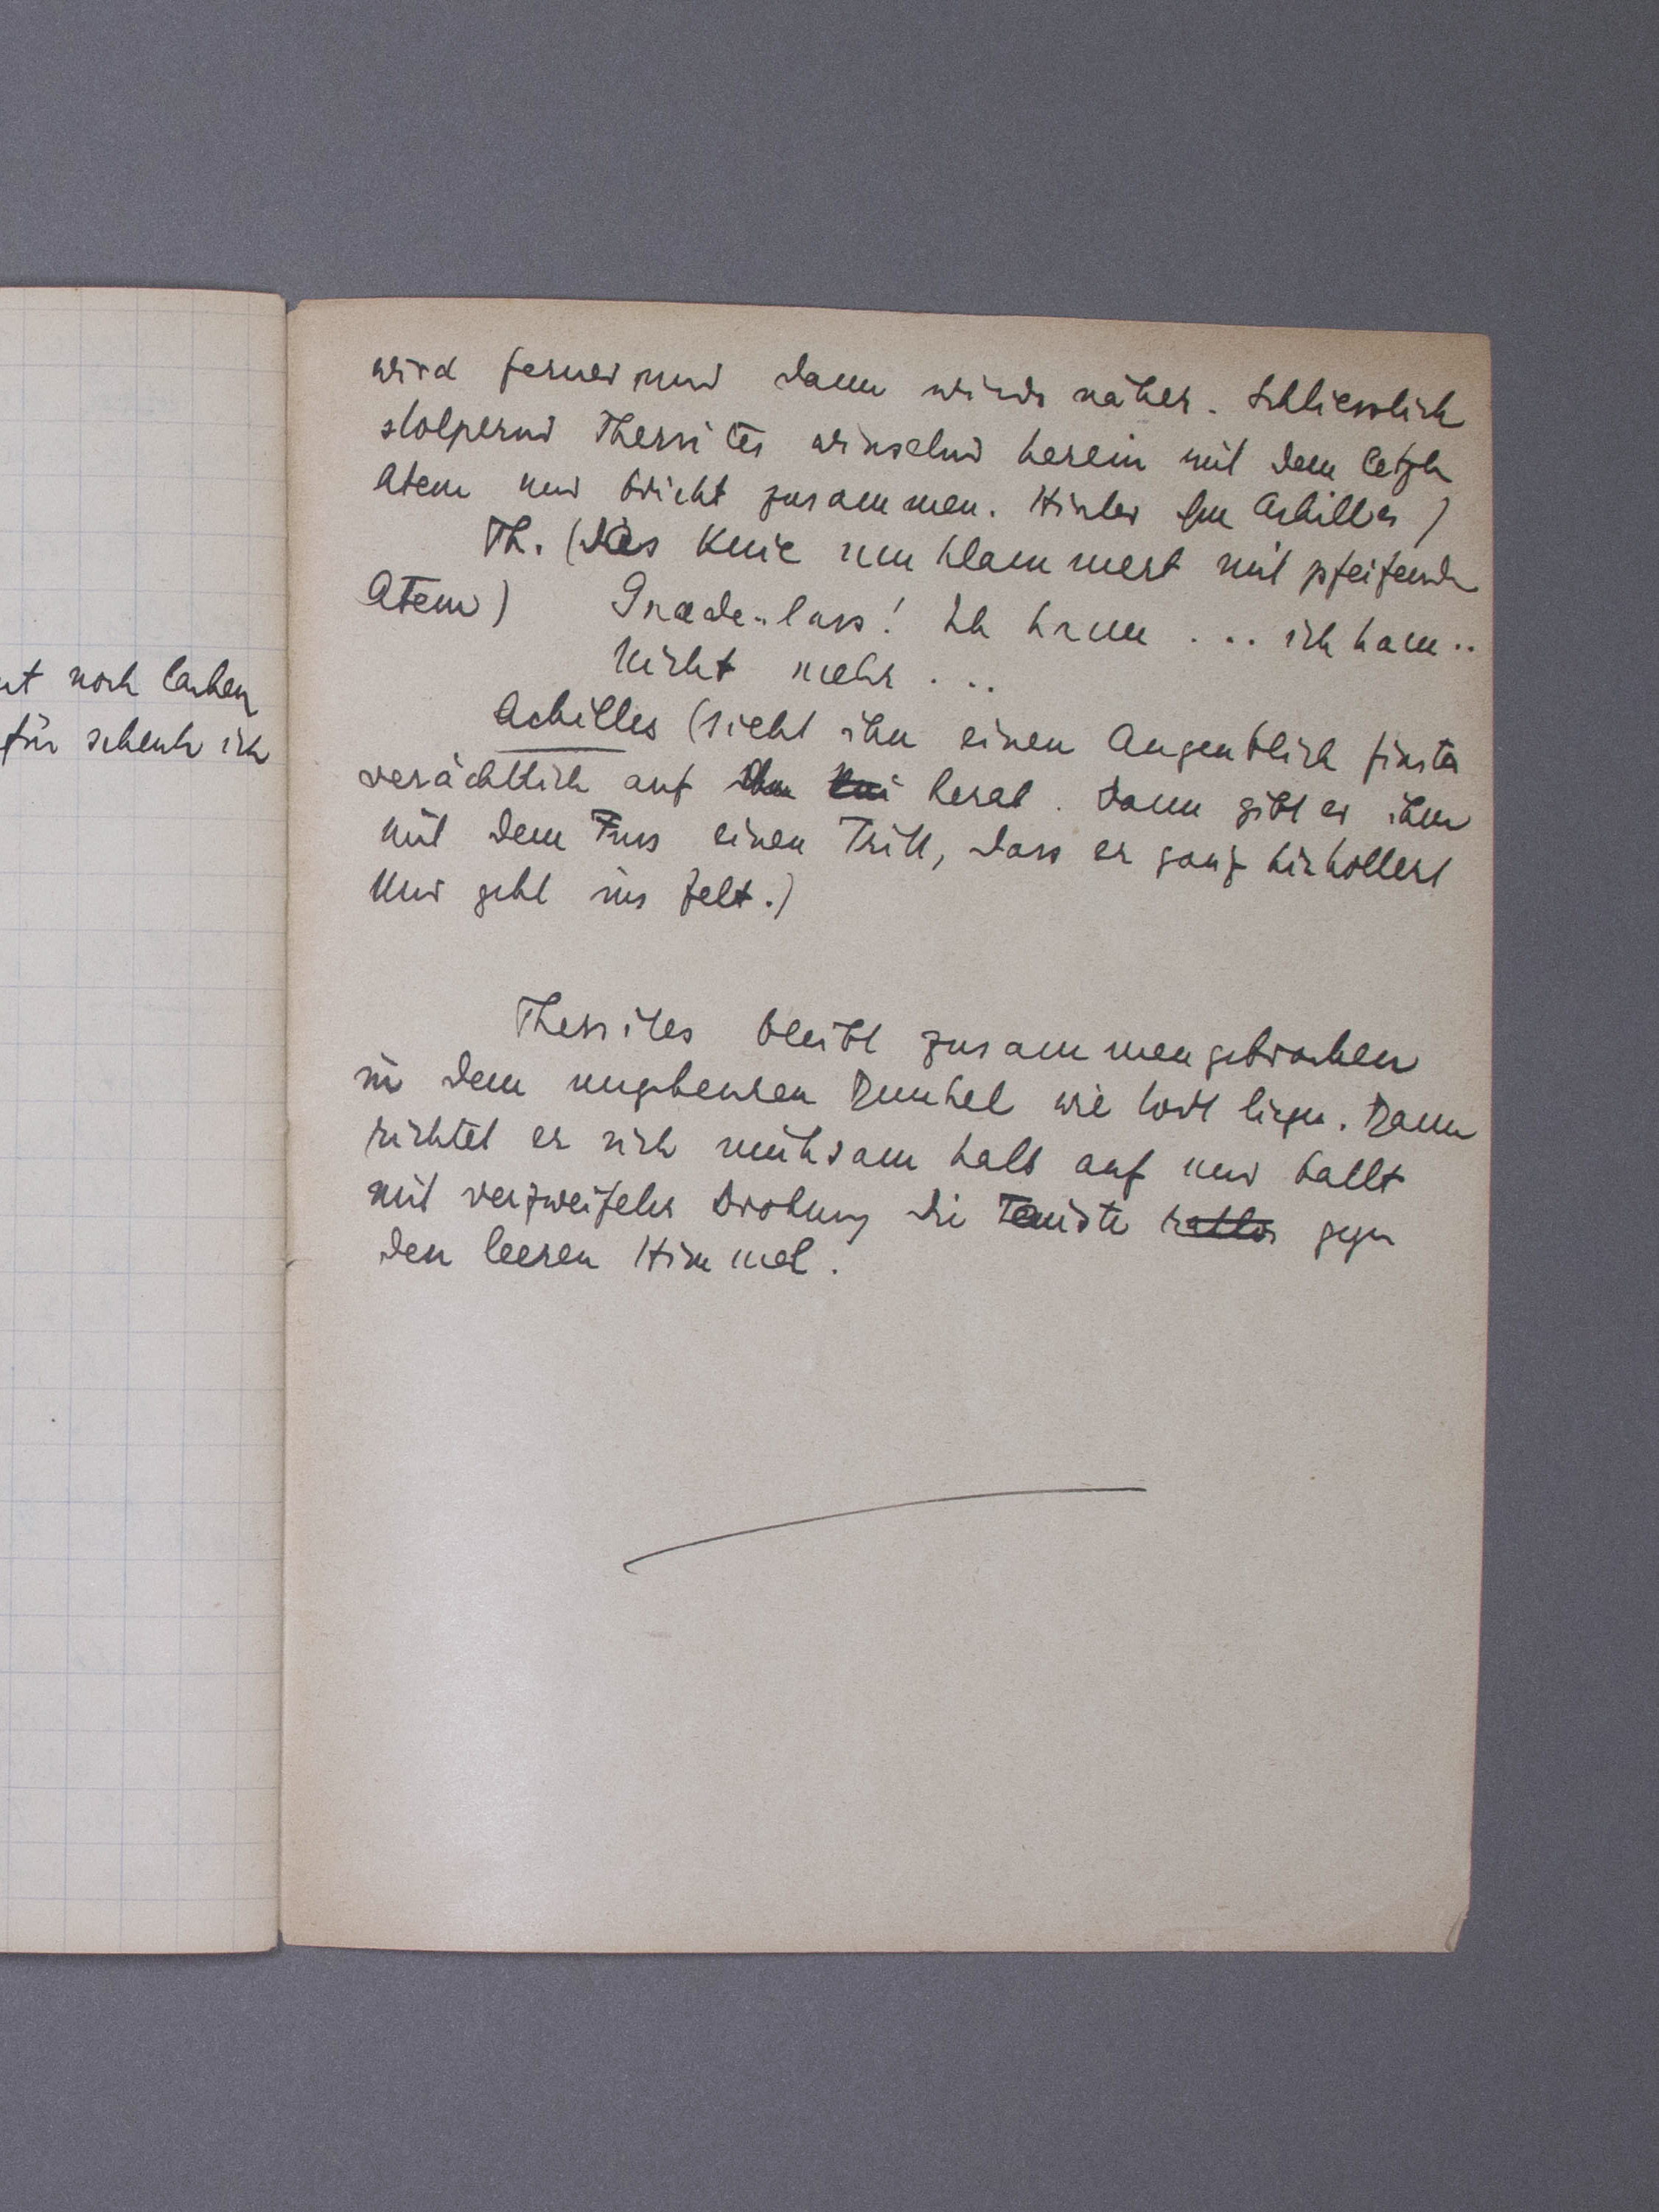 nt noch lachen
für schenk ich
wird ferner und dann wieder näher. Schliesslich
stolpernd Thersites winselnd herein mit dem letzten
Atem und bricht zusammen. Hinter ihm Achilles)
Th. (das Knie umklammert mit pfeifendem
Atem) Gnade.. lass! Ich kann ... ich kann..
nicht mehr ...
Achilles (sieht ihn einen Augenblick finster
verächtlich auf ihn herab. Dann gibt er ihm
mit dem Fuss einen Tritt, dass er ganz hinkollert
und geht ins Zelt.)
Thersites bleibt zusammengebrochen
in dem ungeheuren Dunkel wie todt liegen. Dann
richtet er sich mühsam halb auf und ballt
mit verzweifelter Drohung die Fäuste gegen
den leeren Himmel.